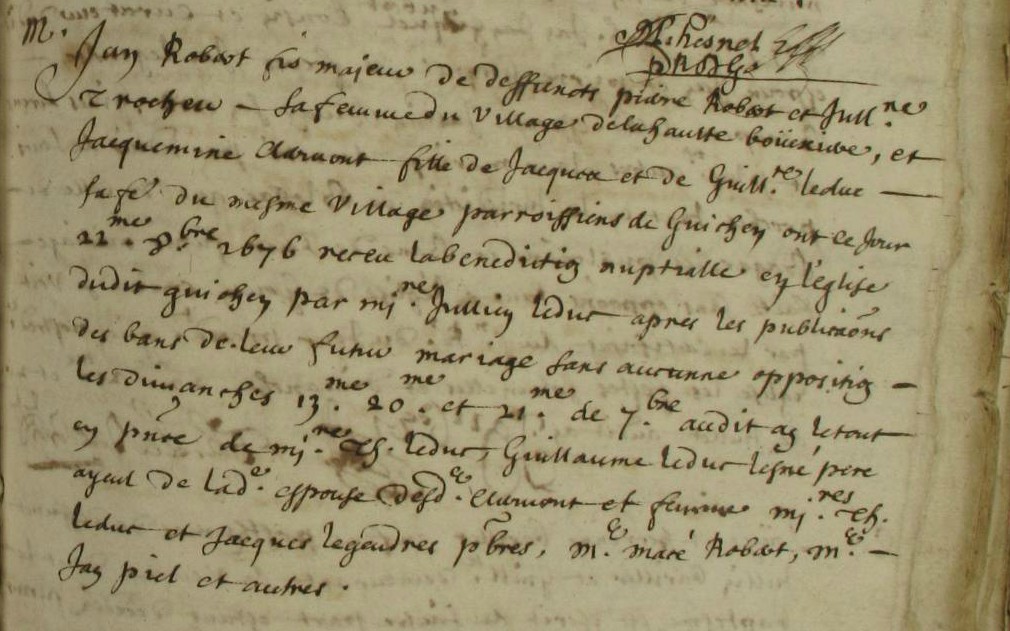 M. Chesnel
M.
Jan Robert fis majeur de deffuncts pierre Robert et Jull.ne
Trocheu sa femme du village delahautte boüexiere, et
Jacquemine Clermont fille de Jacques et de Guill.e leduc
sa fe du mesme village parroissiens de Guichen ont ce jour
22.me 8.bre 1676 receu labenediction nuptialle en leglise
dudit guichen par mi.re Jullien leduc apres les publicaons
des bans de leur futur mariage sans aucunne opposition
les dimanches 13.me 20.me et 21.me de 7.bre audit an letout
en pnce de mi.re leduc, Guillaume leduc lesné pere
ayeul de lad.e espouse Clermont et mi.res
leduc et Jacques legendres pbres, m.e macé Robert, m.e
Jan piel et autres.